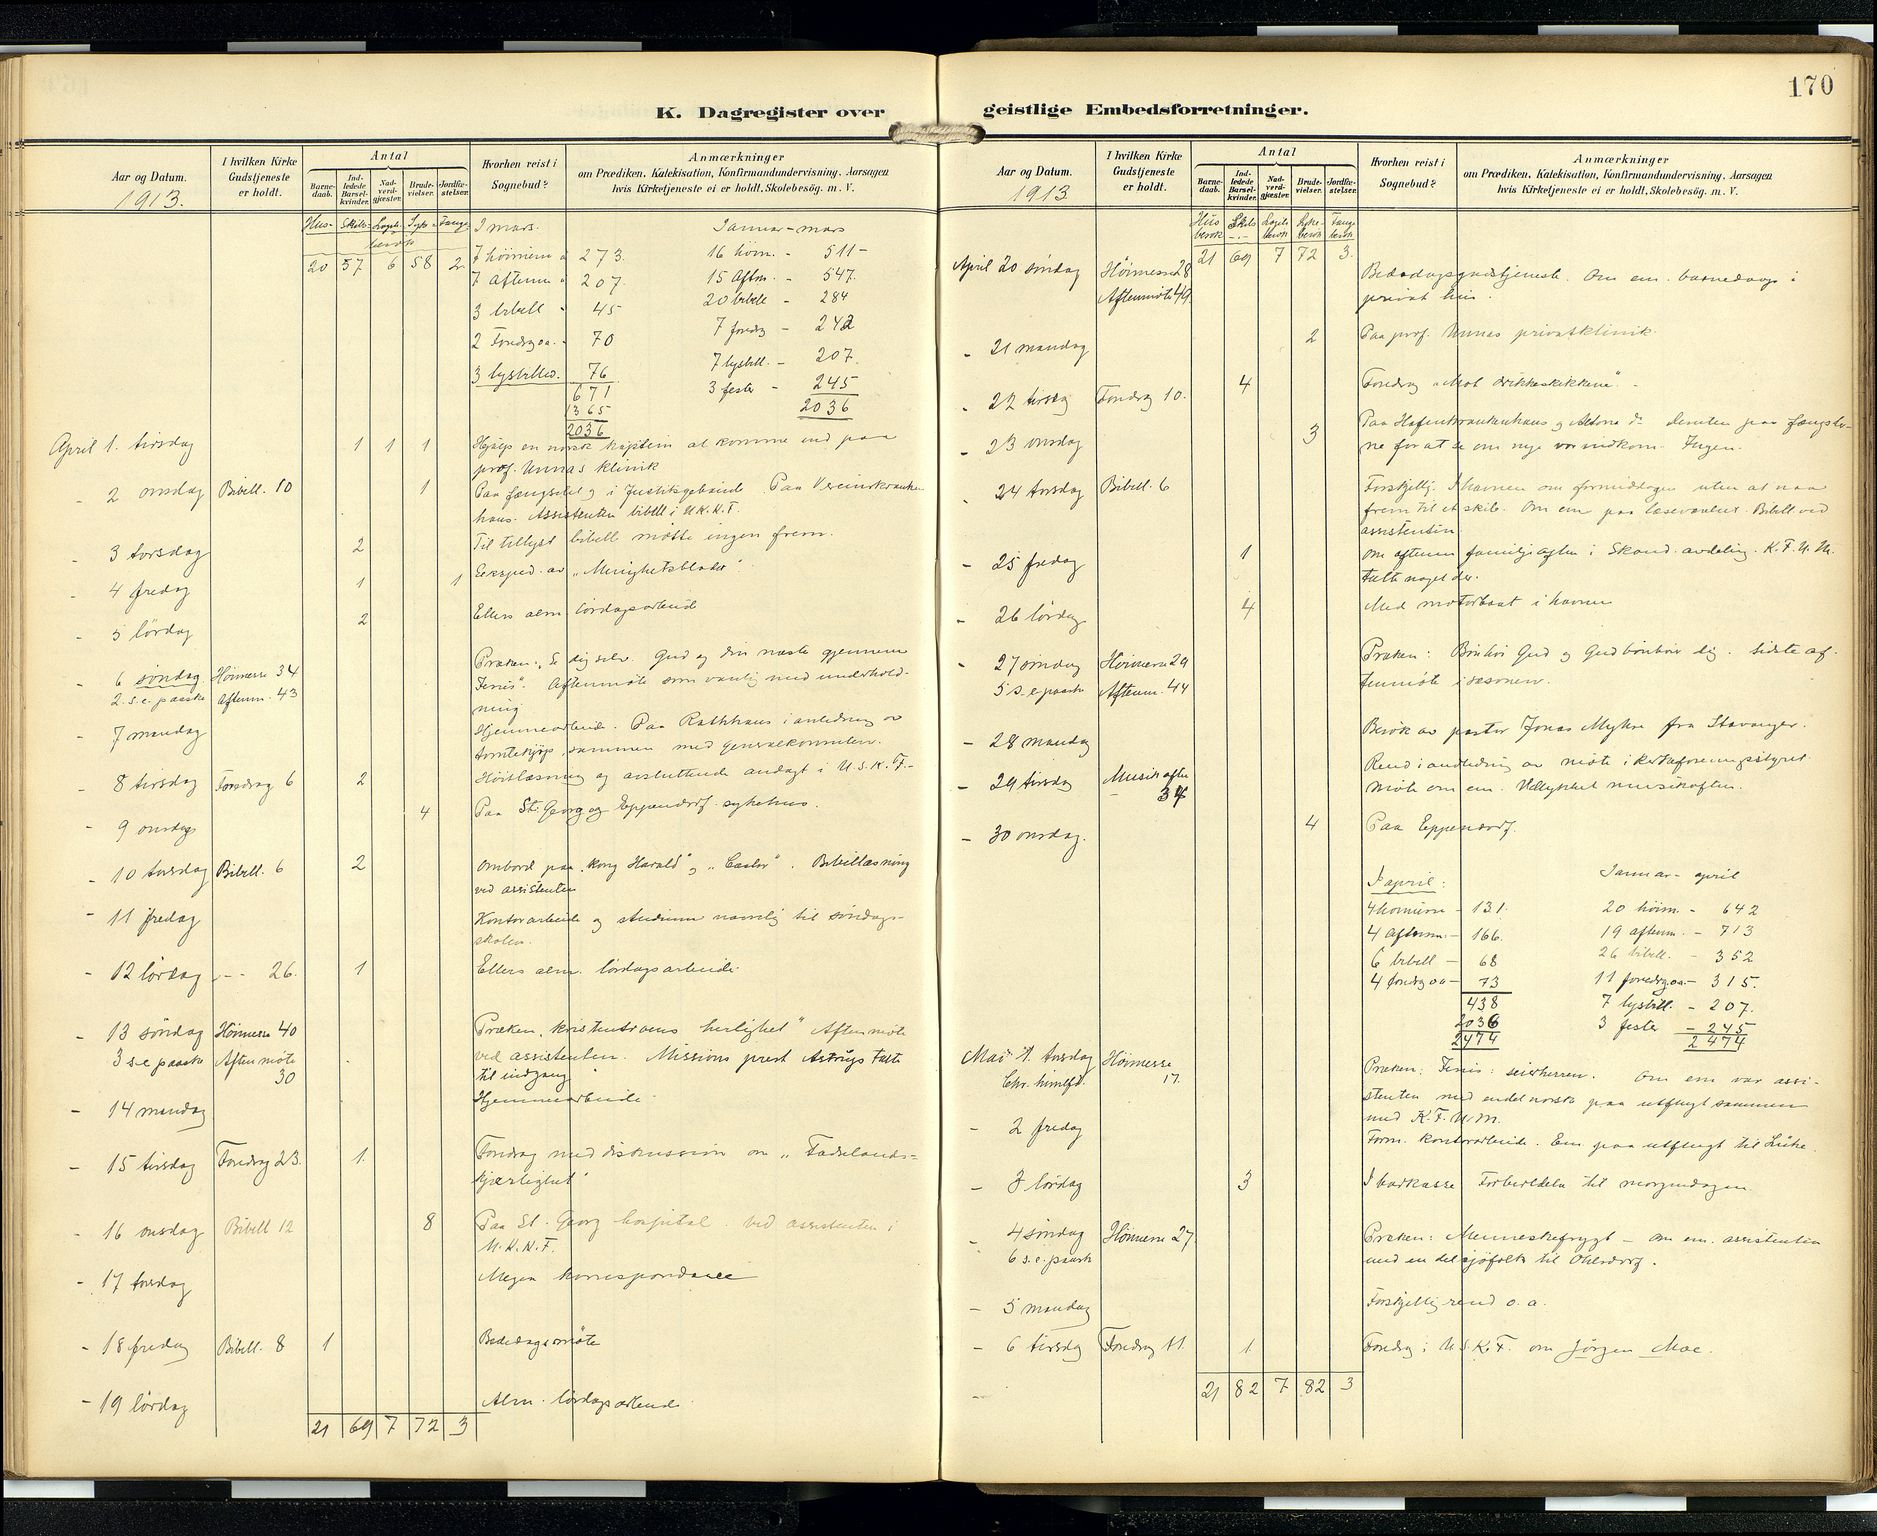 170
K. Dagregister over
geistlige Embedsforretninger.
Aar og Datum.
1913.
I hvilken Kirke Gudstjeneste er holdt.
Antal
Barne-daab.
Ind-ledede Barsel-kvinder.
Nad-verd-gjæster.
Brude-vielser.
Jordfæ-stelser.
Hvorhen reist i Sognebud?
Anmærkninger
om Prædiken, Katekisation, Konfirmandundervisning, Aarsagen
hvis Kirketjeneste ei er holdt, Skolebesög. m. V.
Hus- Skibs- Syke- Fange-
besøk
20 57 6 58 2
I mars. Januar - mars
7 høimesse 273 16 høim. - 511 -
7 aftenm 207. 15 Aftm. - 547.
3 bibell 45 20 bibell - 284
2 Foredrag oa. 70 7 foredrag - 242
3 lysbilled. 76 7 lysbill. - 207.
671 3 fester - 245
1365 2036
2036
April 1. tirsdag 1 1 1 Hjulp en norsk kaptein at komme ind paa
prof. Unnas klinik
- 2 onsdag Bibell. 10 1 Paa fængslet og i Justitsgebäude. Paa Vereinskranken
haus. Assistenten bibell i U.K.K.F.
Til tillyst bibell møtte ingen frem.
- 3 torsdag 2
Eksped. av "Menighetsbladet".
- 4 fredag 1 1
- 5 lördag 2 Ellers alm lördagsarbeide
- 6 søndag Høimesse 34 Præken: "Se dig selv. Gud og din næste gjennem
2. s.e. paaske Aftenm. 43 Jesus". Aftenmøte som vanlig med underhold-
ning
- 7 mandag Hjemmearbeide. Paa Rathhaus i anledning av
tomtekjøp, sammen med generalkonsulen.
- 8 tirsdag Foredrag 6 2 Høitlæsning og avsluttende andagt i U.S.K.F.-
- 9 onsdag 4 Paa St. Georg og Eppendorf. sykehus.
- 10 torsdag Bibell. 6 2 Ombord paa "Kong Harald" og "Castor". Bibellæsning
ved assistenten
- 11 fredag Kontorarbeide og studium navnlig til søndags-
skolen.
- 12 lördag - - 26. 1 Ellers alm. lördagsarbeide.
- 13 söndag Høimesse 40 Præken "kristentroens herlighet" Aftenmøte
3 s.e. paaske Aftenmöte 30 ved assistenten. Missions prest Astrup talte
til indgang
- 14 mandag Hjemmearbeide.
- 15 tirsdag Foredrag 23. 1. Foredrag med diskussion om "Fædrelands-
kjærlighet"
- 16 onsdag Bibell 12 8 Paa St. Georg hospital. Ved assistenten i
U.K.K.F.
- 17 torsdag Megen korrespondance
- 18 fredag Bibell. 8 1 Bededagsmöte
- 19 lördag Alm. lördagsarbeide.
21 69 7 72 3
Aar og Datum.
1913
I hvilken Kirke Gudstjeneste er holdt.
Antal
Barne-daab.
Ind-ledede Barsel-kvinder.
Nad-verd-gjæster.
Brude-vielser.
Jordfæ-stelser.
Hvorhen reist i Sognebud?
Anmærkninger
om Prædiken, Katekisation, Konfirmandundervisning, Aarsagen
hvis Kirketjeneste ei er holdt, Skolebesög. m. V.
Hus besøk Skibs -"- besøk Syke- besøk Fange besøk
21 69 7 72 3.
April 20 söndag Høimesse 28 Bededagsgudstjeneste. Om em. barnedaap i
Aftenmöte 49 privat hus.
- 21 mandag 2 Paa prof. Unnas privatklinik.
- 22 tirsdag Foredrag 10. 4 Foredrag "Mot drikkeskikkene". -
- 23 onsdag 3 Paa Hafenkrankenhaus og Altona do desuten paa fængsle-
ne for at se om nye var indkom. Ingen.
- 24 torsdag Bibell. 6 Forskjellig. I havnen om formiddagen uten at naa
frem til et skib. Om em paa læseværelset. Bibell ved
assistenten
- 25 fredag 1 Om aftenen familjeaften i Skand. avdeling. K.F.U.M.
Talte noget der.
- 26 lördag 4 Med motorbaat i havnen
- 27 söndag Høimesse 29 Præken: Bønhør Gud og Gud bönhör dig. Sidste af-
5 s.e. paaske Aftenm. 44 tenmöte i sesonen.
- 28 mandag Besøk av pastor Jonas Myhre fra Stavanger.
- 29 tirsdag Musikaften 34 Rend i anledning av möte i kirkeforeningsstyret.
Möte om em. Vellykket musikaften.
- 30 onsdag. 4 Paa Eppendorf.
I april: Januar - april
4 høimesse - 131. 20 høim. - 642
4 Aftenm. - 166. 19 aftenm. - 713
6 bibell - 68 26 bibell. - 352
4 foredrag oa - 73 11 foredrag oa - 315.
438 7 lysbill. - 207.
2036 3 fester - 245
2474 2474
Mai 1. torsdag Høimesse 17. Præken: Jesus: seierherren. Om em var assi-
Chr. himlfd. stenten med endel norske paa utflugt sammen
med K.F.U.M.
- 2 fredag Form. kontorarbeide. Em paa utflugt til Lühe.
- 3 lördag 3 I barkasse Forberedelse til morgendagen
- 4 söndag Høimesse 27 Præken: Menneskefrygt - om em. assistenten
6 s.e. paaske med en del sjöfolk til Ohlsdorf.
- 5 mandag Forskjellig rend o.a.
- 6 tirsdag Foredrag 11 1 Foredrag i U.S.K.F. om Jörgen Moe.
21 82 7 82 3